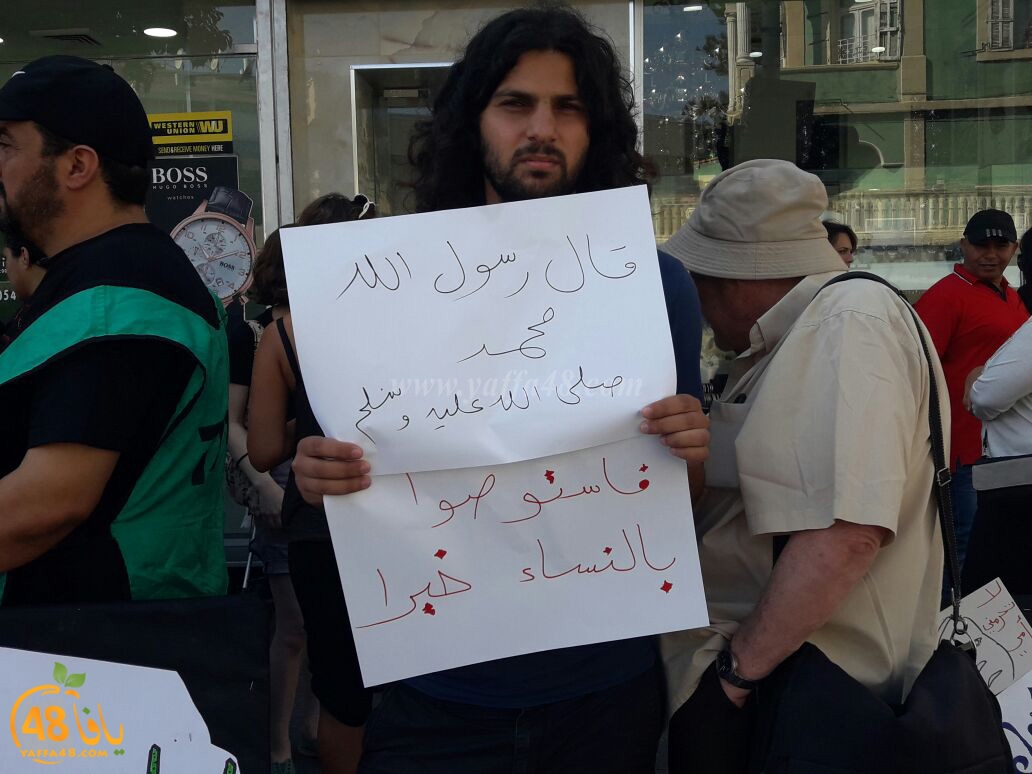 WESTERN
UNION WU
SEND&RECEIVE MONEY HERE
BOSS
HUGO BOSS
watches
BOSS
054
قال رسول الله
محمد
صلى الله عليه وسلم
فاستوصوا
بالنساء خيرا
www.yaffa48.com
لا
48 يافا
YAFFA48.COM